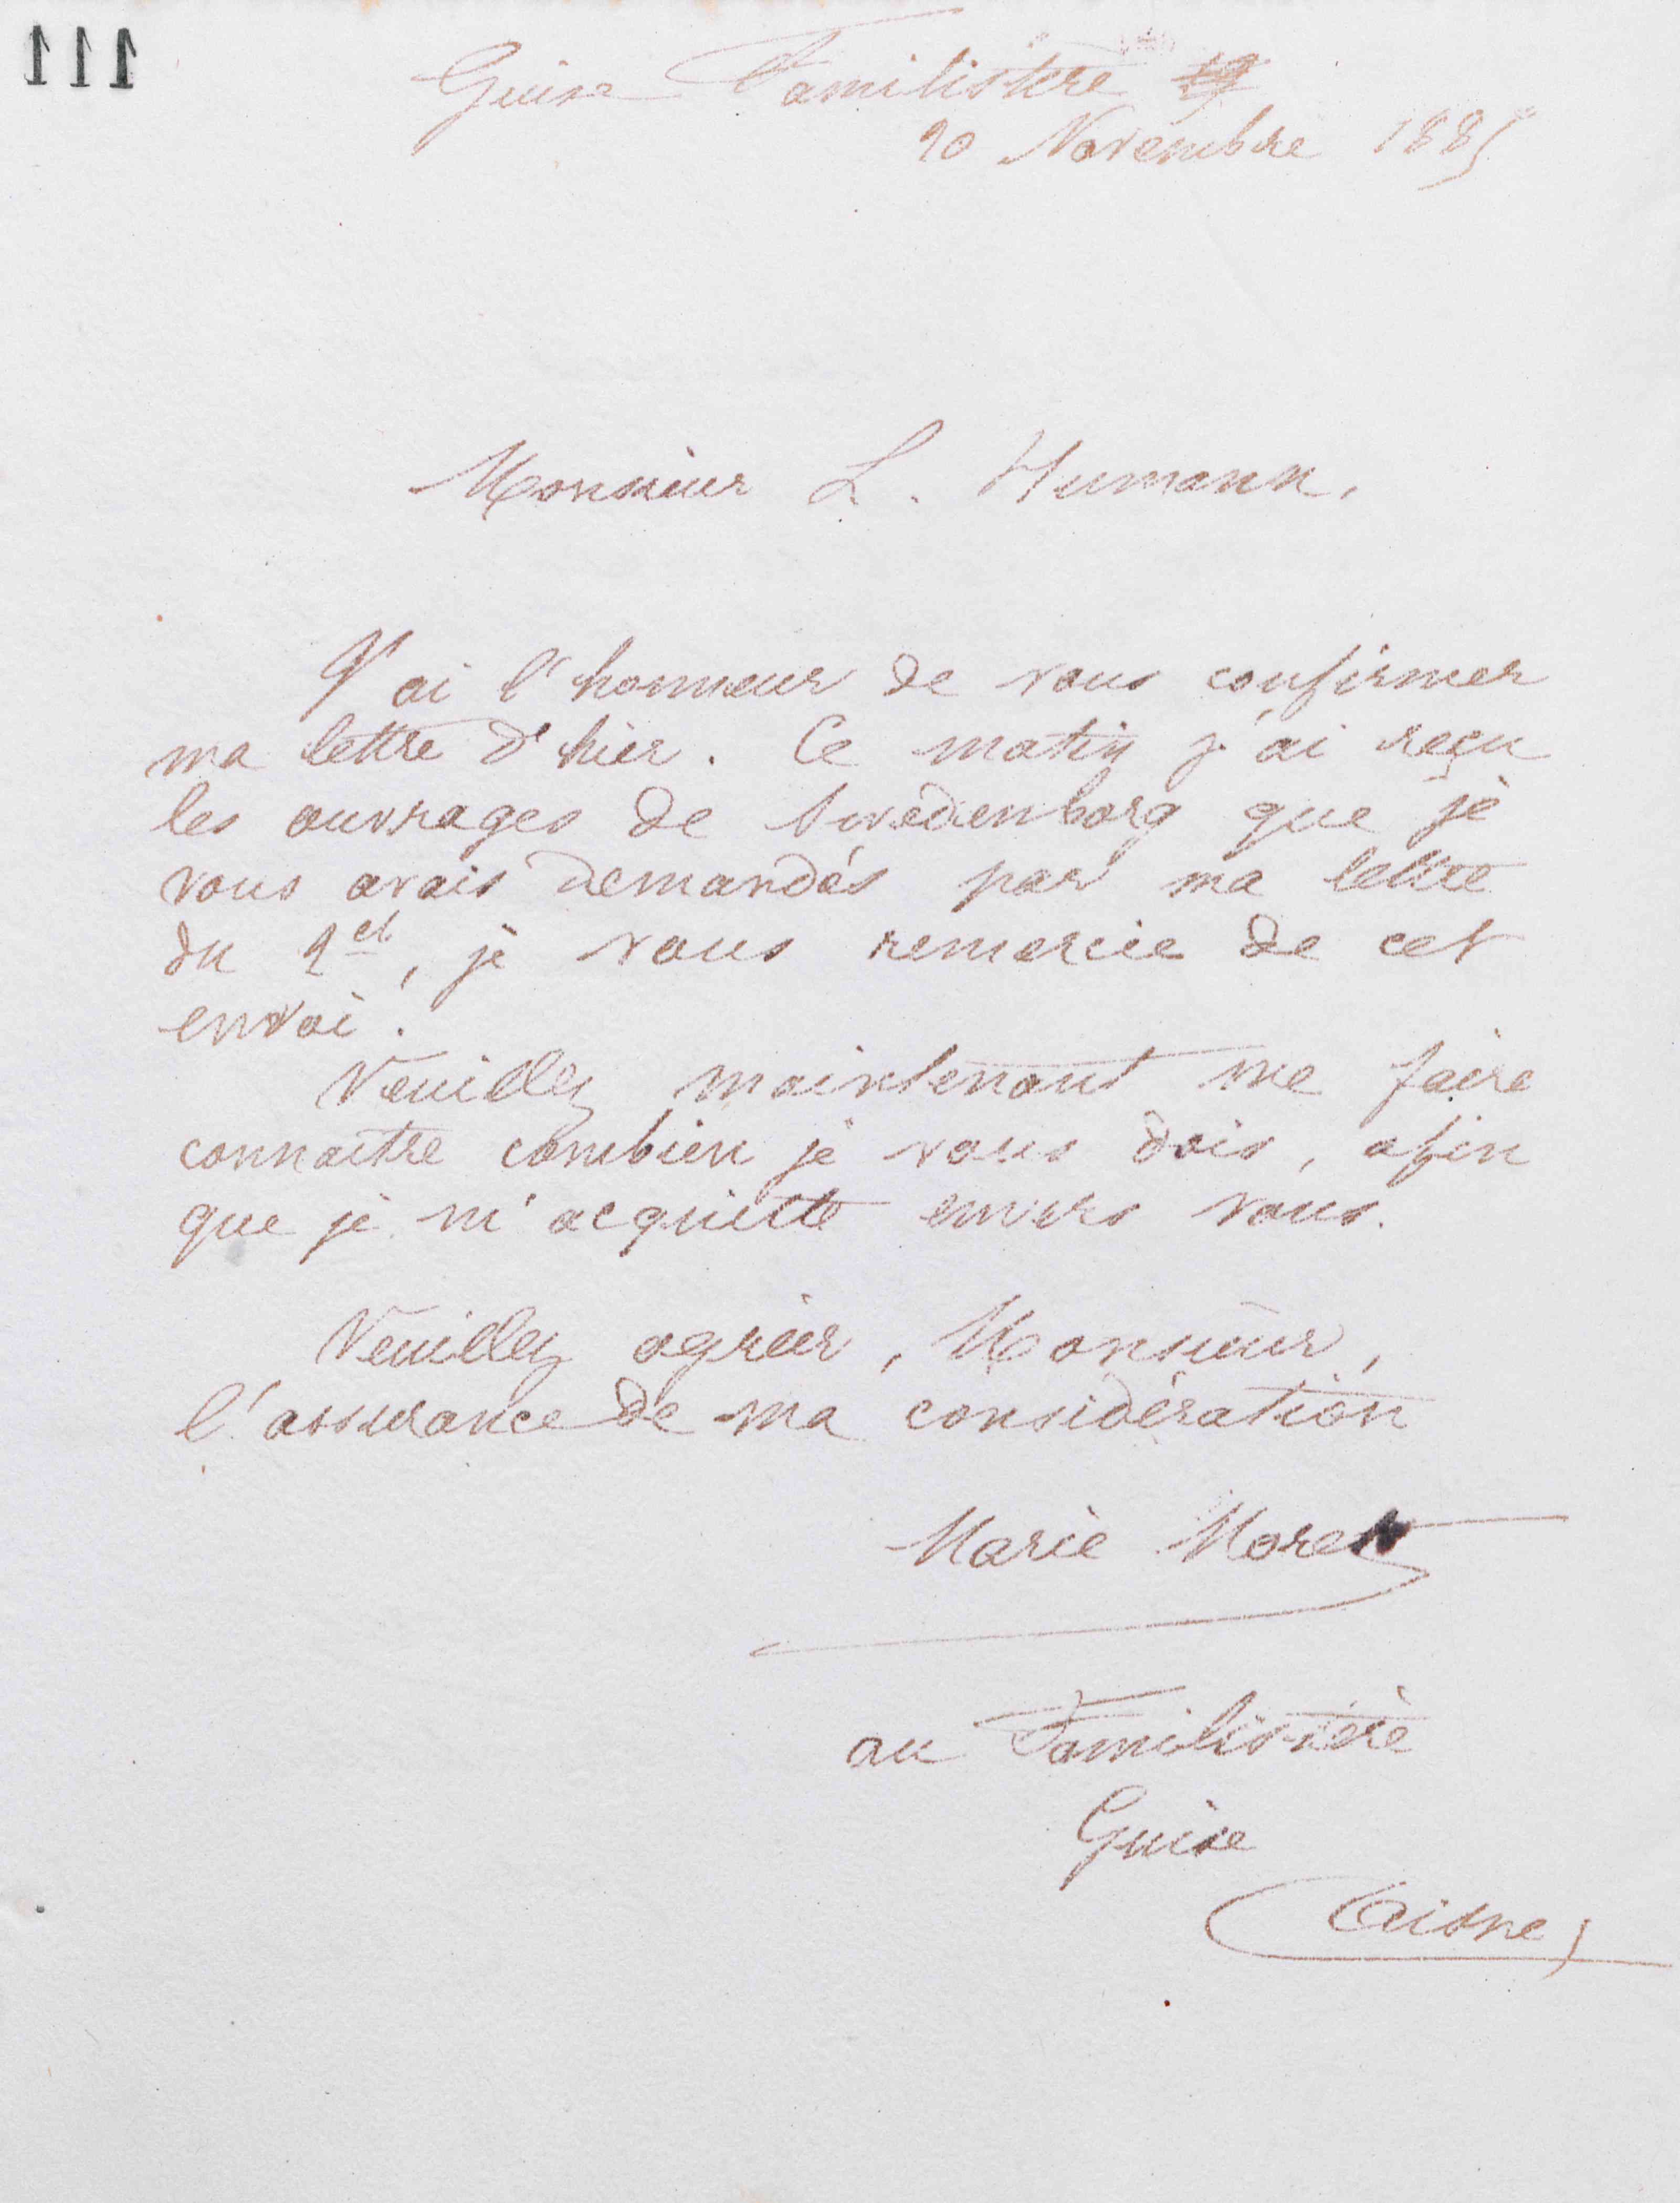 111
Guise Familistère 19
20 Novembre 1885
Monsieur L. Humann,
J'ai l'honneur de vous confirmer
ma lettre d'hier. Ce matin j'ai reçu
les ouvrages de Swedenborg que je
vous avais demandés par ma lettre
du 2 ct, je vous remercie de cet
envoi.
Veuillez maintenant me faire
connaitre combien je vous dois, afin
que je m'acquitte envers vous.
Veuillez agréer, Monsieur,
l'assurance de ma considération
Marie Moret
au Familistère
Guise
(Aisne)